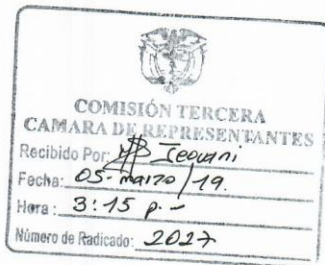 COMISIÓN TERCERA
CAMARA DE REPRESENTANTES
Recibido Por:
Fecha: 05 - marzo / 19.
Hora: 3:15 p.-
Número de Radicado: 2027